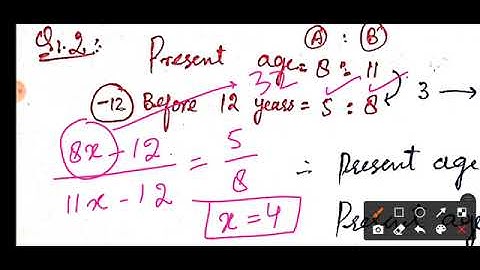 Q.2.: (A) : (B)
Present age = 8 : 11
32
-12 Before 12 years = 5 : 8 3 →
8x - 12 / 11x - 12 = 5/8
= Present age
x = 4
Present age